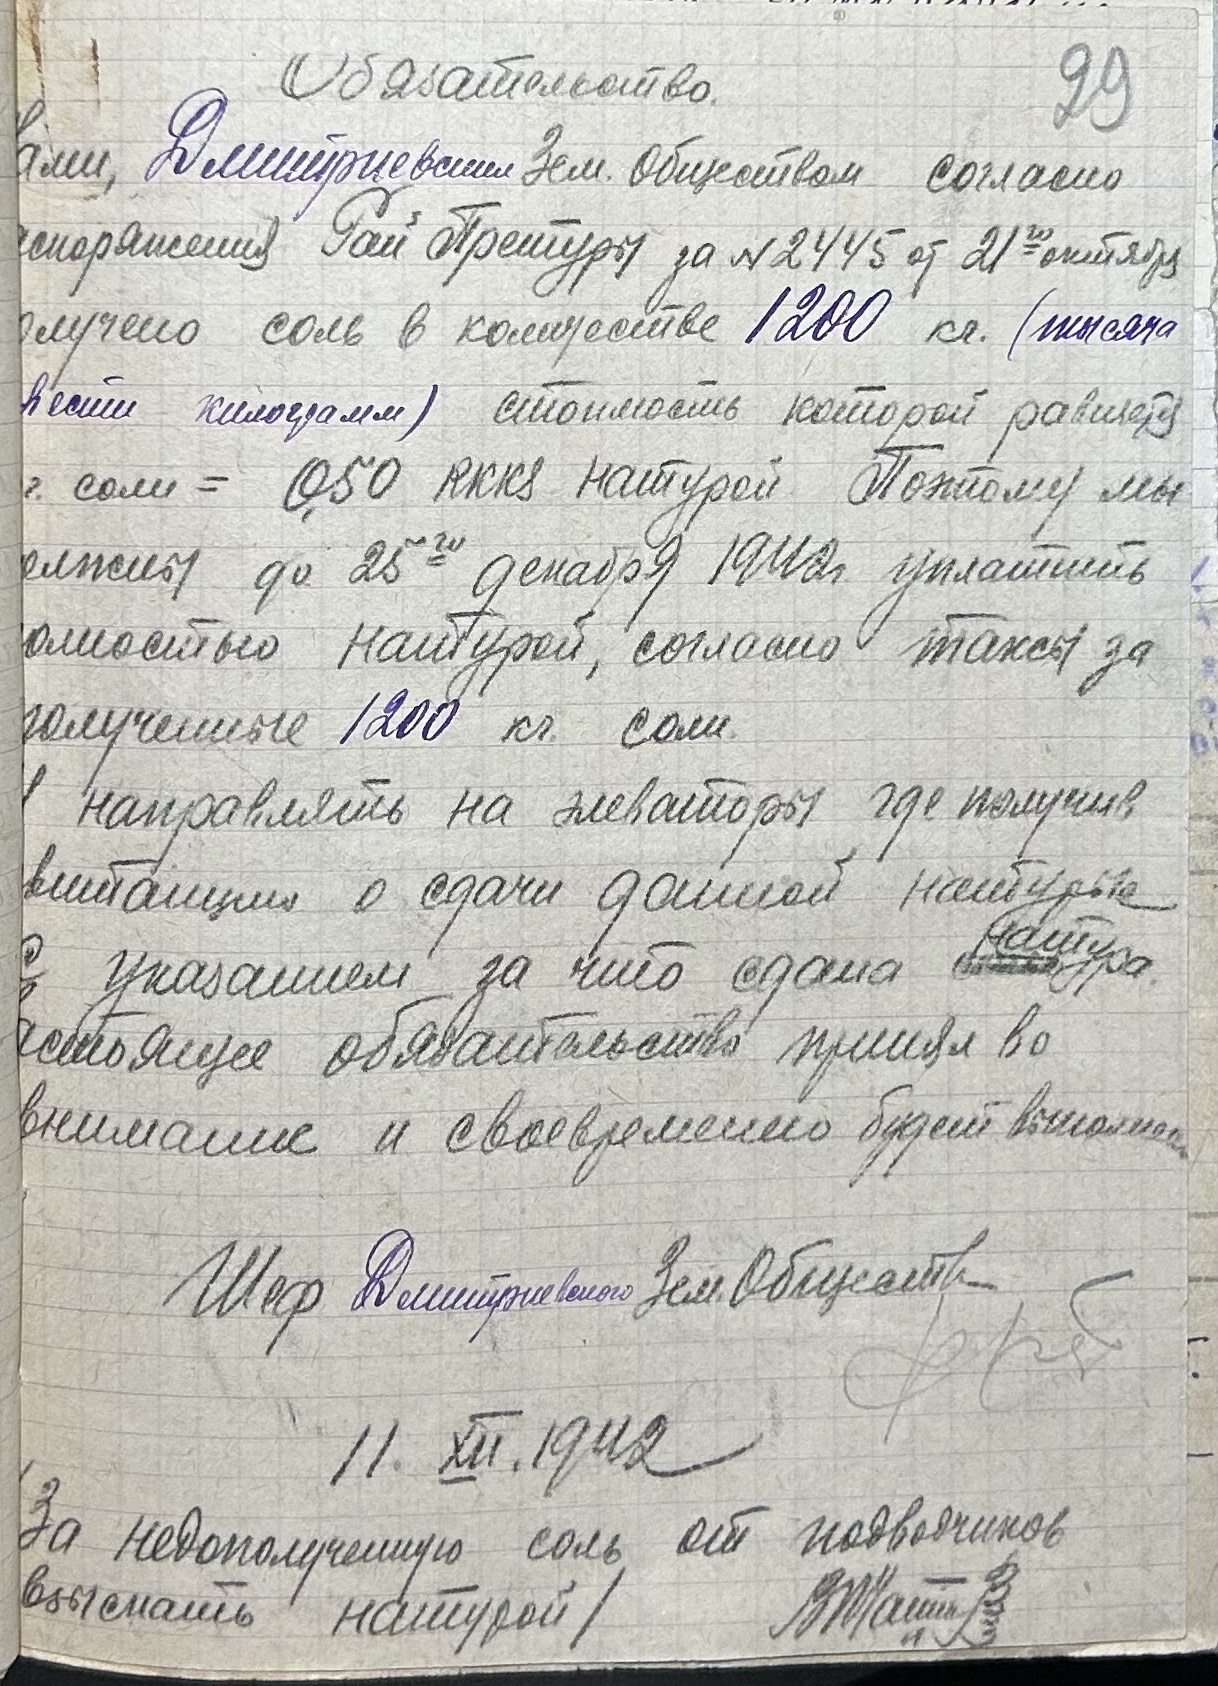 Обязательство.
29
ами, Дмитриевским Зем. Обществом согласно
споряжения Рай Претуры за № 2445 от 21го октября
олучено соль в количестве 1200 кг. (тысяча
вести килограмм) стоимость которой равняется
г. соли = 0,50 RKKS натурой Поэтому мы
олжны до 25го декабря 1942г уплатить
олностью натурой, согласно таксы за
полученные 1200 кг. соли.
направлять на элеваторы где получив
витанцию о сдачи данной натуры
С указанием за что сдана натура.
астоящее обязательство принял во
внимание и своевременно будет выполнено
Шеф Дмитриевского Зем. Обществ
11. XII. 1942
За недополученную соль от подводчиков
взыскать натурой/